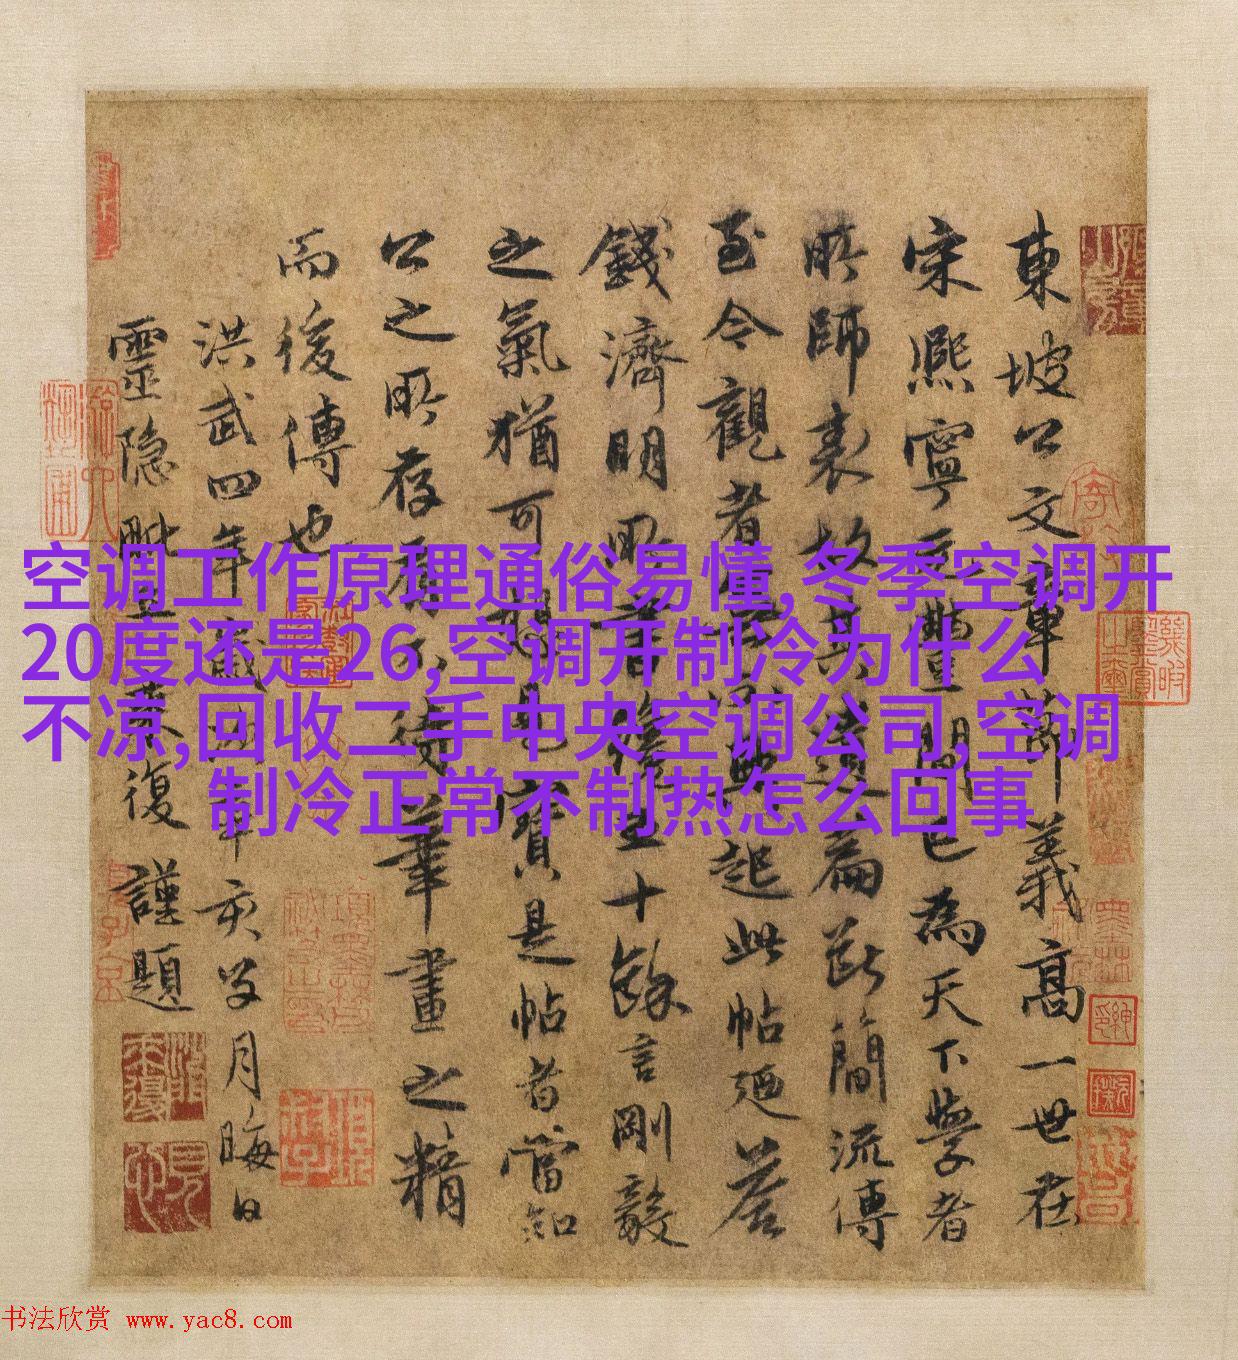 東坡公文章節義高一世在
宋熙寧元豐間已為天下學者
所師表故其遺篇斷簡流傳
至今觀者興起此帖廼答
錢濟明至十餘言剛毅
之氣猶可想見寶是帖者當知
公之所存不待筆畫之精
而後傳也
洪武四年歲亥月晦日
靈隱來復謹題
空调工作原理通俗易懂,冬季空调开
20度还是26,空调开制冷为什么
不凉,回收二手中央空调公司,空调
制冷正常不制热怎么回事
书法欣赏 www.yac8.com